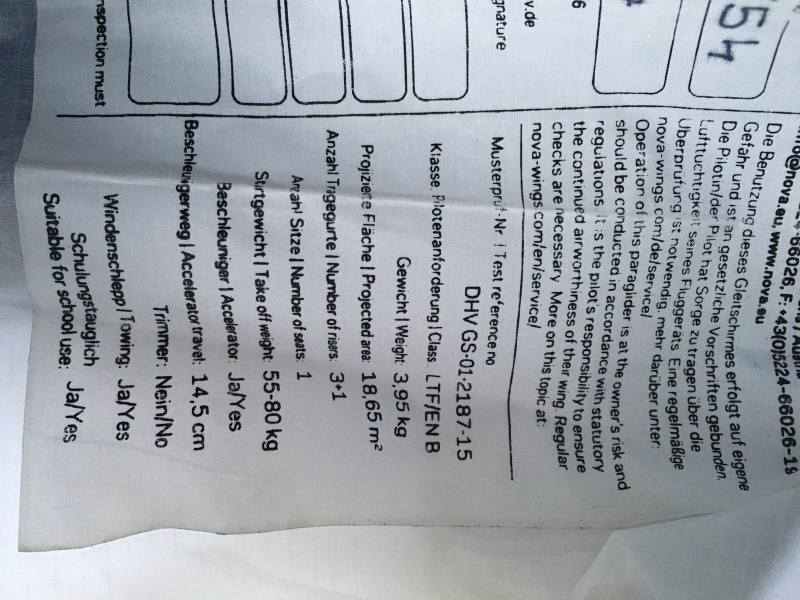 54
6
v.de
gnature
nspection must
66026, F: +43(0)5224-66026-19
info@nova.eu, www.nova.eu
Die Benutzung dieses Gleitschirmes erfolgt auf eigene
Gefahr und ist an gesetzliche Vorschriften gebunden.
Die Pilotin/der Pilot hat Sorge zu tragen über die
Lufttüchtigkeit seines Fluggeräts. Eine regelmäßige
Überprüfung ist notwendig, mehr darüber unter:
nova-wings.com/de/service/
Operation of this paraglider is at the owner's risk and
should be conducted in accordance with statutory
regulations. It is the pilot's responsibility to ensure
the continued airworthiness of their wing. Regular
checks are necessary. More on this topic at:
nova-wings.com/en/service/
Musterprüf-Nr. | Test reference no
DHV GS-01-2187-15
Klasse, Pilotenanforderung | Class: LTF/EN B
Gewicht | Weight: 3,95 kg
Projizierte Fläche | Projected area: 18,65 m²
Anzahl Tragegurte | Number of risers: 3+1
Anzahl Sitze | Number of seats: 1
Startgewicht | Take off weight: 55-80 kg
Beschleuniger | Accelerator: Ja/Yes
Beschleunigerweg | Accelerator travel: 14,5 cm
Trimmer: Nein/No
Windenschlepp | Towing: Ja/Yes
Schulungstauglich
Suitable for school use: Ja/Yes